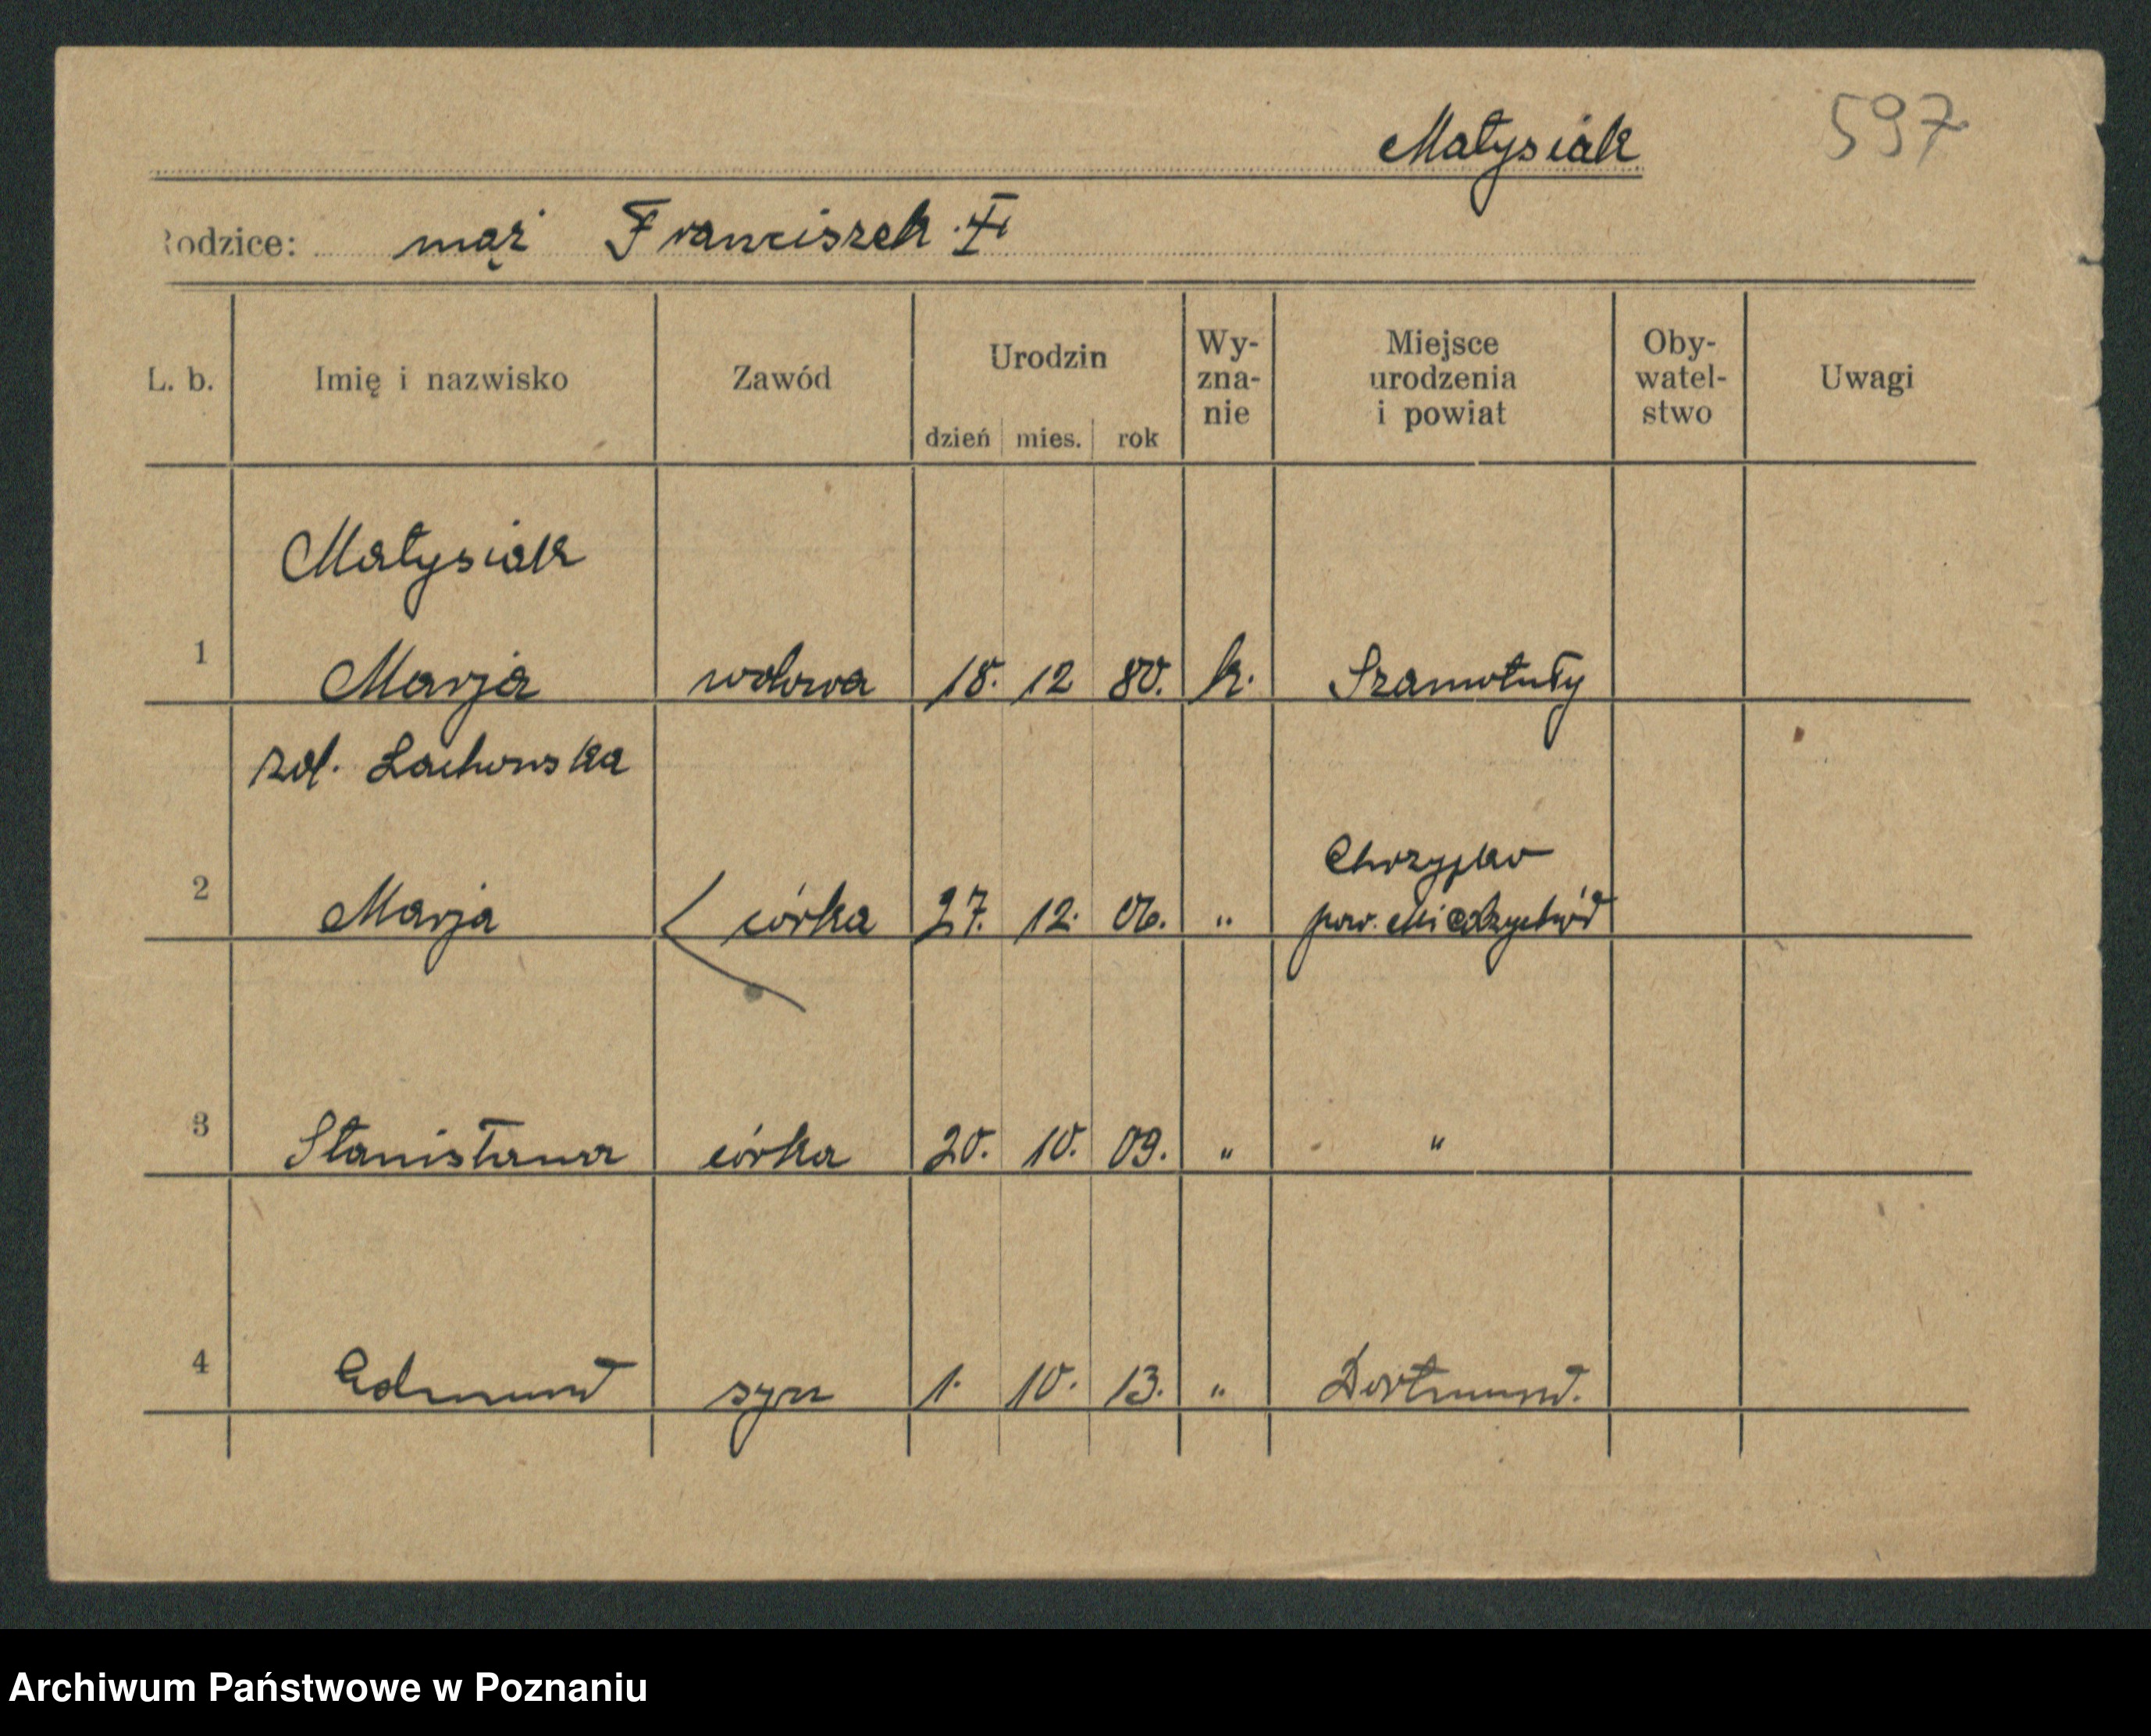 Małysiak
597
Rodzice: mąż Franciszek
L. b. Imię i nazwisko Zawód Urodzin dzień mies. rok Wy-zna-nie Miejsce urodzenia i powiat Oby-watel-stwo Uwagi
Małysiak
1 Marja wdowa 18. 12 80. k. Szamotuły
zd. Lachowska
Chrzypko
2 Marja córka 27. 12. 06. " pow. Międzychód
3 Stanisława córka 20. 10. 09. " "
4 Edmund syn 1. 10. 13. " Dortmund.
Archiwum Państwowe w Poznaniu